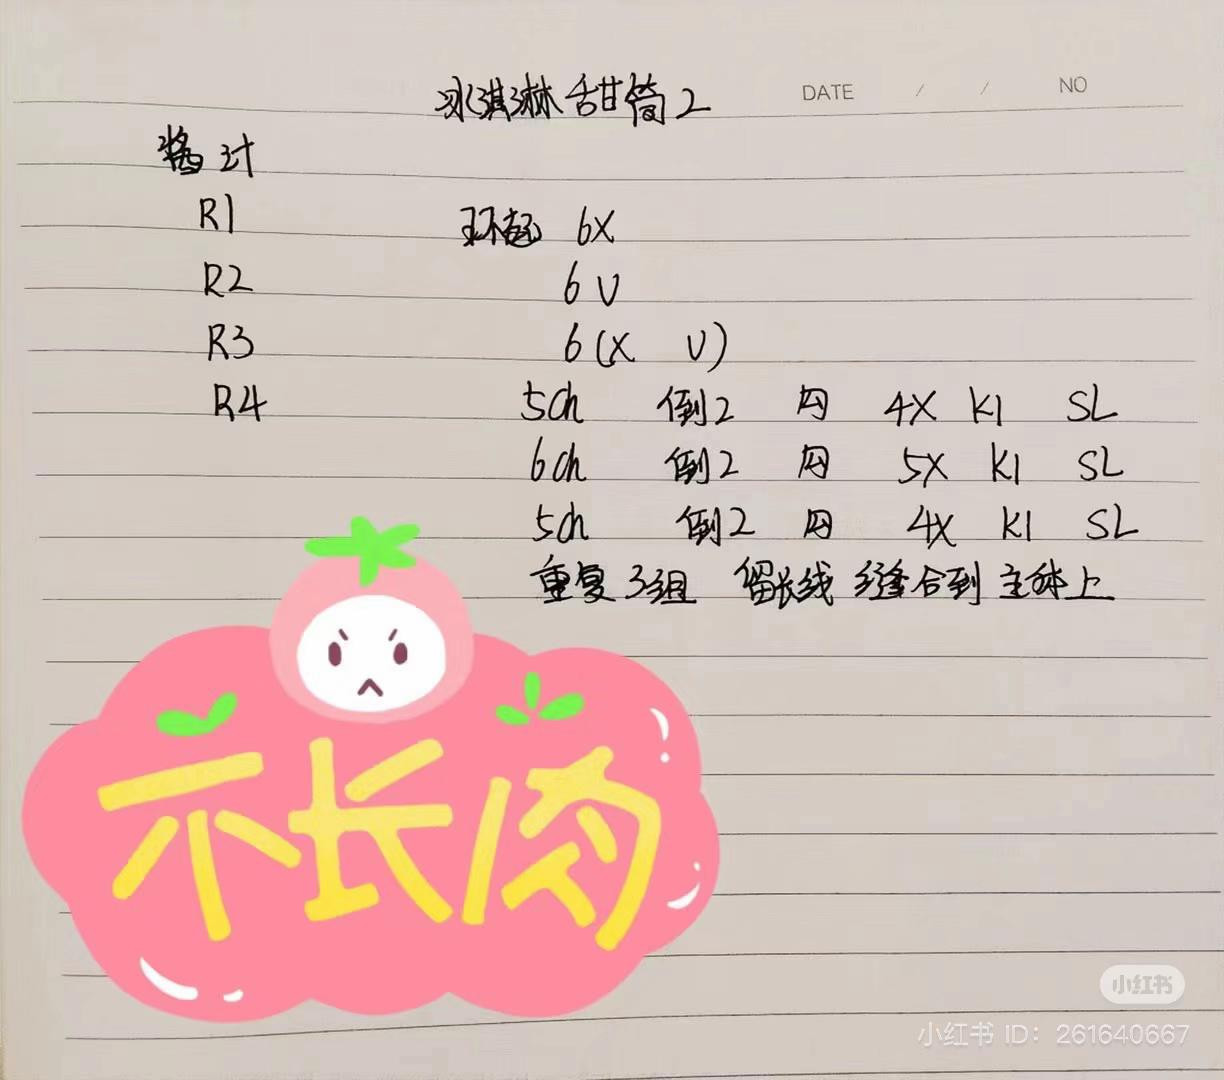 冰淇淋甜筒2 DATE / / NO
酱汁
R1 环起 6X
R2 6V
R3 6(X V)
R4 5ch 倒2 勾 4X K1 SL
6ch 倒2 勾 5X K1 SL
5ch 倒2 勾 4X K1 SL
重复3组 留长线 缝合到主体上
不长肉
小红书
小红书 ID: 261640667